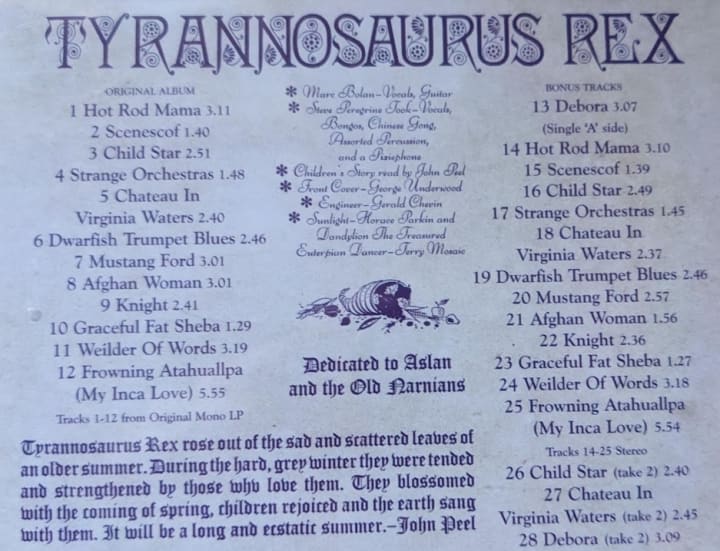 TYRANNOSAURUS REX
ORIGINAL ALBUM
1 Hot Rod Mama 3.11
2 Scenescof 1.40
3 Child Star 2.51
4 Strange Orchestras 1.48
5 Chateau In
Virginia Waters 2.40
6 Dwarfish Trumpet Blues 2.46
7 Mustang Ford 3.01
8 Afghan Woman 3.01
9 Knight 2.41
10 Graceful Fat Sheba 1.29
11 Weilder Of Words 3.19
12 Frowning Atahuallpa
(My Inca Love) 5.55
Tracks 1-12 from Original Mono LP
* Marc Bolan-Vocals, Guitar
* Steve Peregrine Took-Vocals,
Bongos, Chinese Gong,
Assorted Percussion,
and a Pixiephone
* Children's Story read by John Peel
* Front Cover-George Underwood
* Engineer-Gerald Chevin
* Sunlight-Horace Parkin and
Dandylion The Treasured
Euterpian Dancer-Terry Mosaic
Dedicated to Aslan
and the Old Narnians
BONUS TRACKS
13 Debora 3.07
(Single 'A' side)
14 Hot Rod Mama 3.10
15 Scenescof 1.39
16 Child Star 2.49
17 Strange Orchestras 1.45
18 Chateau In
Virginia Waters 2.37
19 Dwarfish Trumpet Blues 2.46
20 Mustang Ford 2.57
21 Afghan Woman 1.56
22 Knight 2.36
23 Graceful Fat Sheba 1.27
24 Weilder Of Words 3.18
25 Frowning Atahuallpa
(My Inca Love) 5.54
Tracks 14-25 Stereo
26 Child Star (take 2) 2.40
27 Chateau In
Virginia Waters (take 2) 2.45
28 Debora (take 2) 3.09
Tyrannosaurus Rex rose out of the sad and scattered leaves of
an older summer. During the hard, grey winter they were tended
and strengthened by those who love them. They blossomed
with the coming of spring, children rejoiced and the earth sang
with them. It will be a long and ecstatic summer.-John Peel